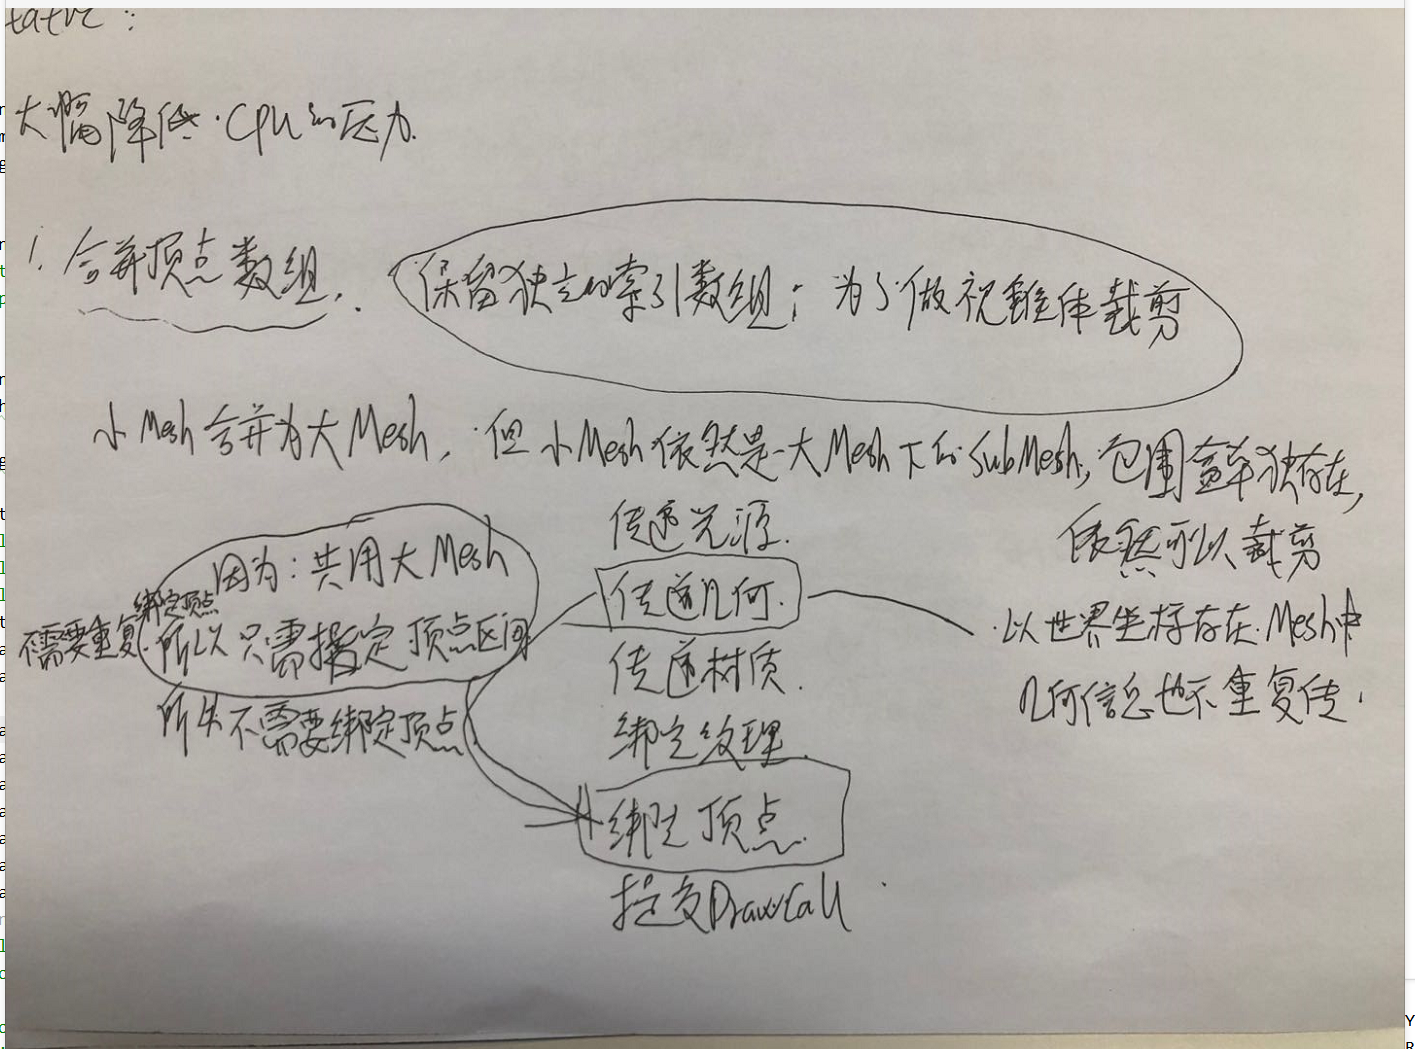 tatic：
大幅降低CPU的压力.
1. 合并顶点数组.
保留独立的索引数组；为了做视锥体裁剪
小Mesh合并为大Mesh，但小Mesh依然是大Mesh下的SubMesh，包围盒单独存在，
依然可以裁剪
因为：共用大Mesh
绑定顶点
不需要重复
所以只需指定顶点区间
所以不需要绑定顶点
传递光源.
传递几何.
传递材质.
绑定纹理.
绑定顶点.
提交DrawCall
以世界坐标存在Mesh中
几何信息也不重复传.